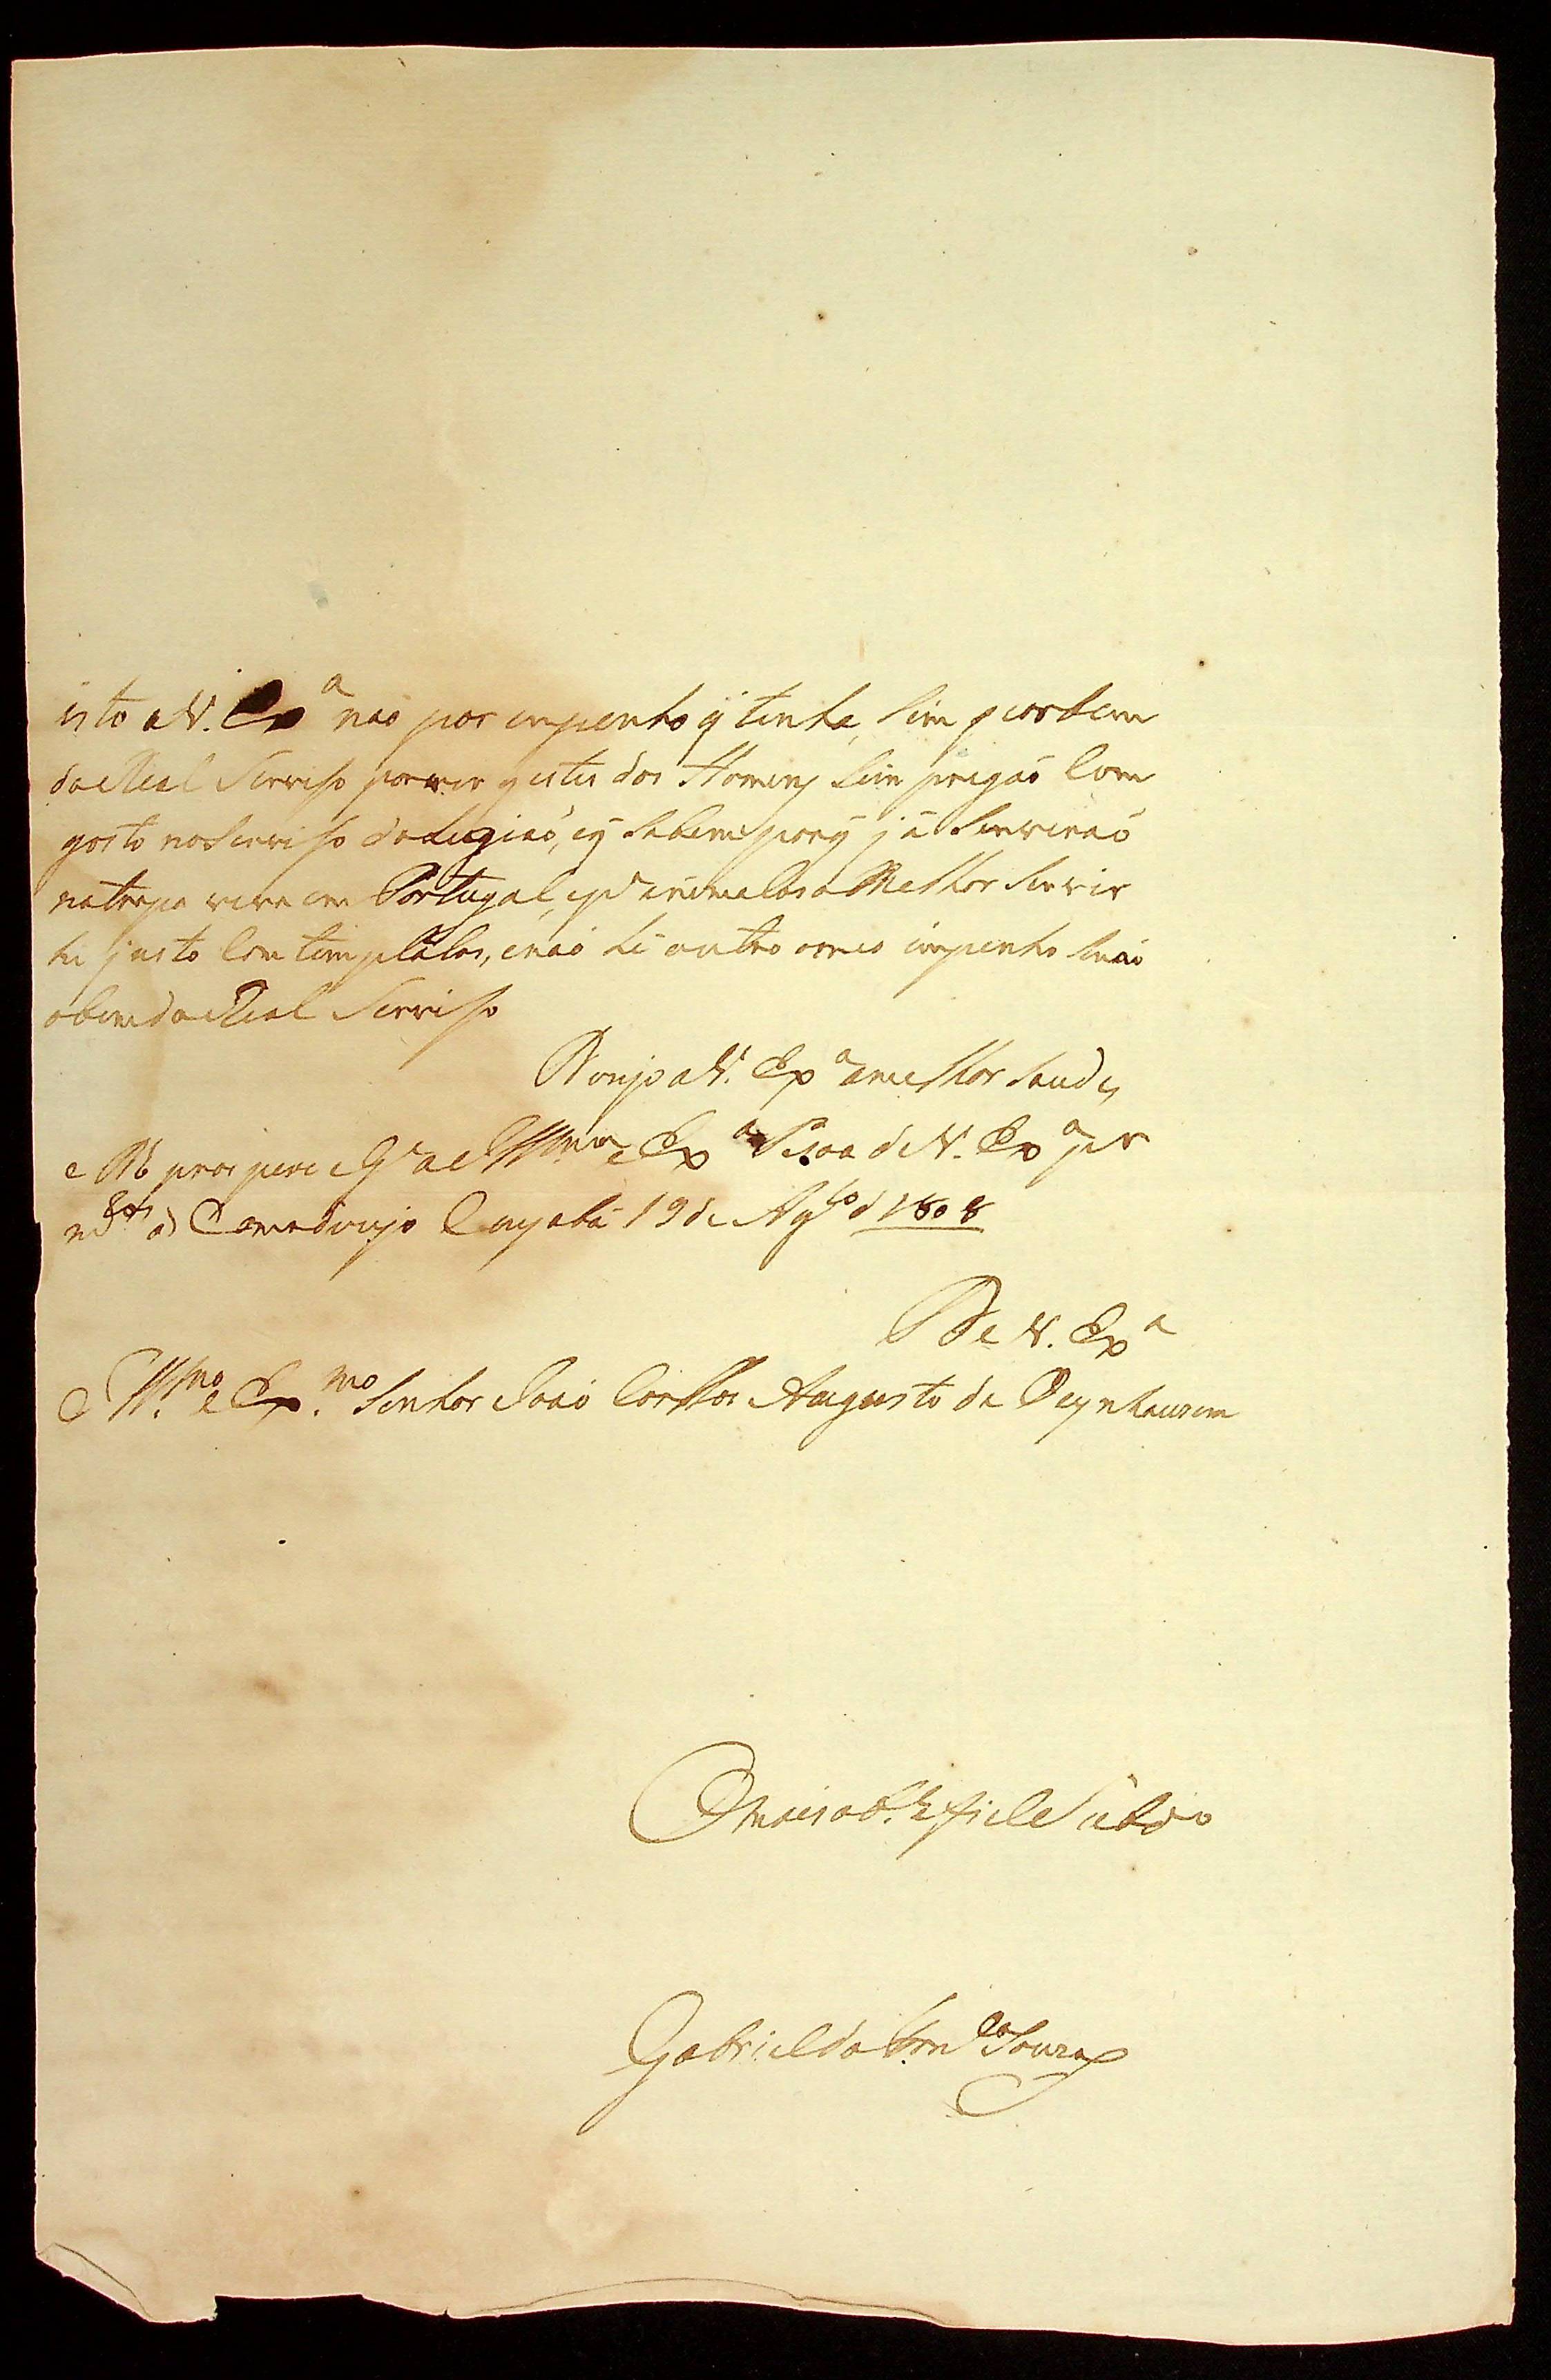 isto aV. Exª naó por empenho q̃ tenha, sim por bem
do Real Serviso por ver q estes dos Homens sim pregaó Com
gosto no Serviso da Legiaó, eq̃ Sabem porq̃ já Serviraó
na tropa viva em Portugal, e pª animalos a Melhor Servir
he justo Comtemplálos, enaó hé outro omeo impenho Senaó
obem do Real Serviso
Dezejo aV. Exª amelhor Saude,
e Ds prospere e Gde a Illma e Exª Pesoa deV. Exª pr
ms as Como dezejo Cuyabá 19 de Agto d 1808
De V. Exª
Illmo e Exmo Senhor Joaó Carllos Augusto de Oeynhausem
O mais obte fiel Subdo
Gabriel da Fonca Souza